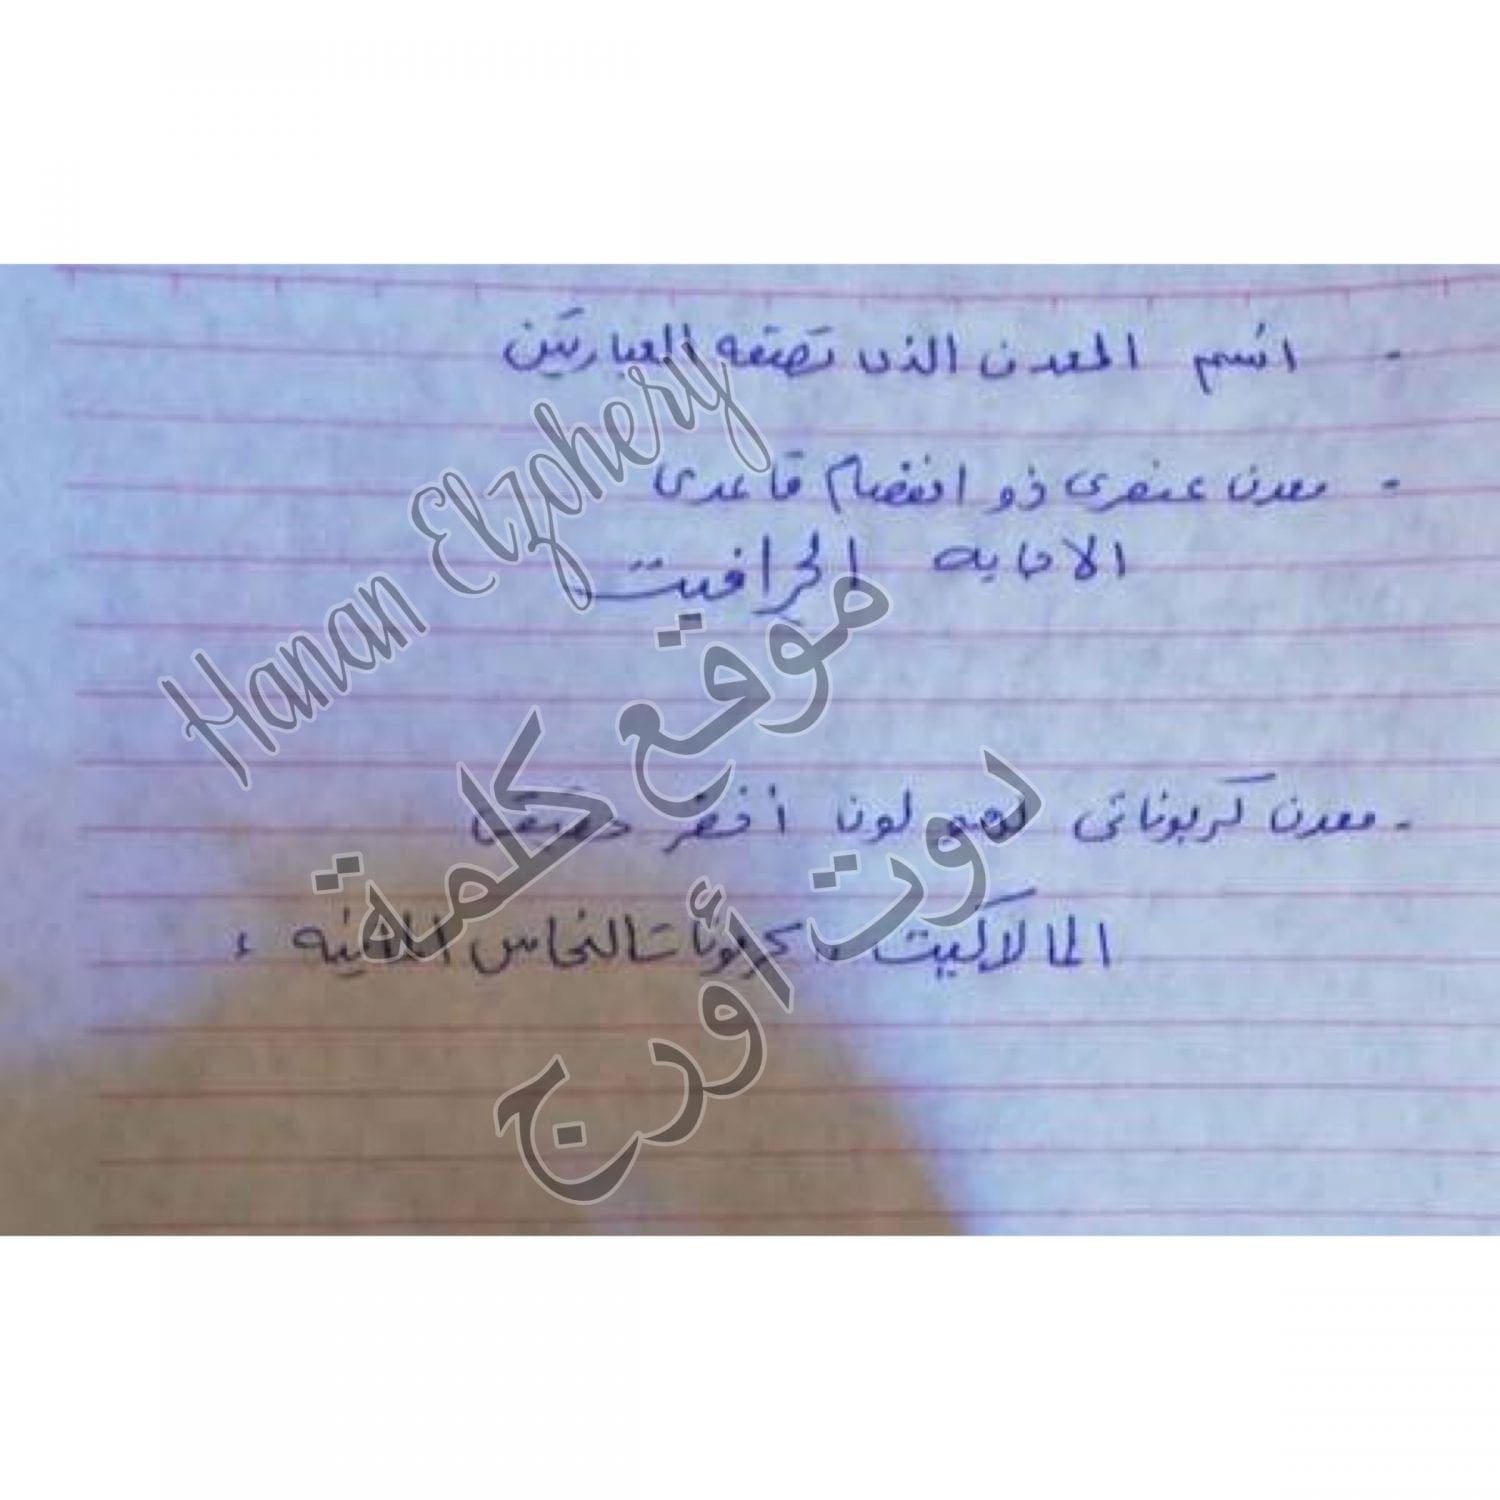 - اسم المعدن الذى تصفه العبارتين
- معدن عنصرى ذو انفصام قاعدى
الاجابه الجرافيت
- معدن كربوناتى لونه أخضر
المالاكيت كربونات النحاس المائيه
Hanan Elzohery
موقع كلمة
دوت أورج